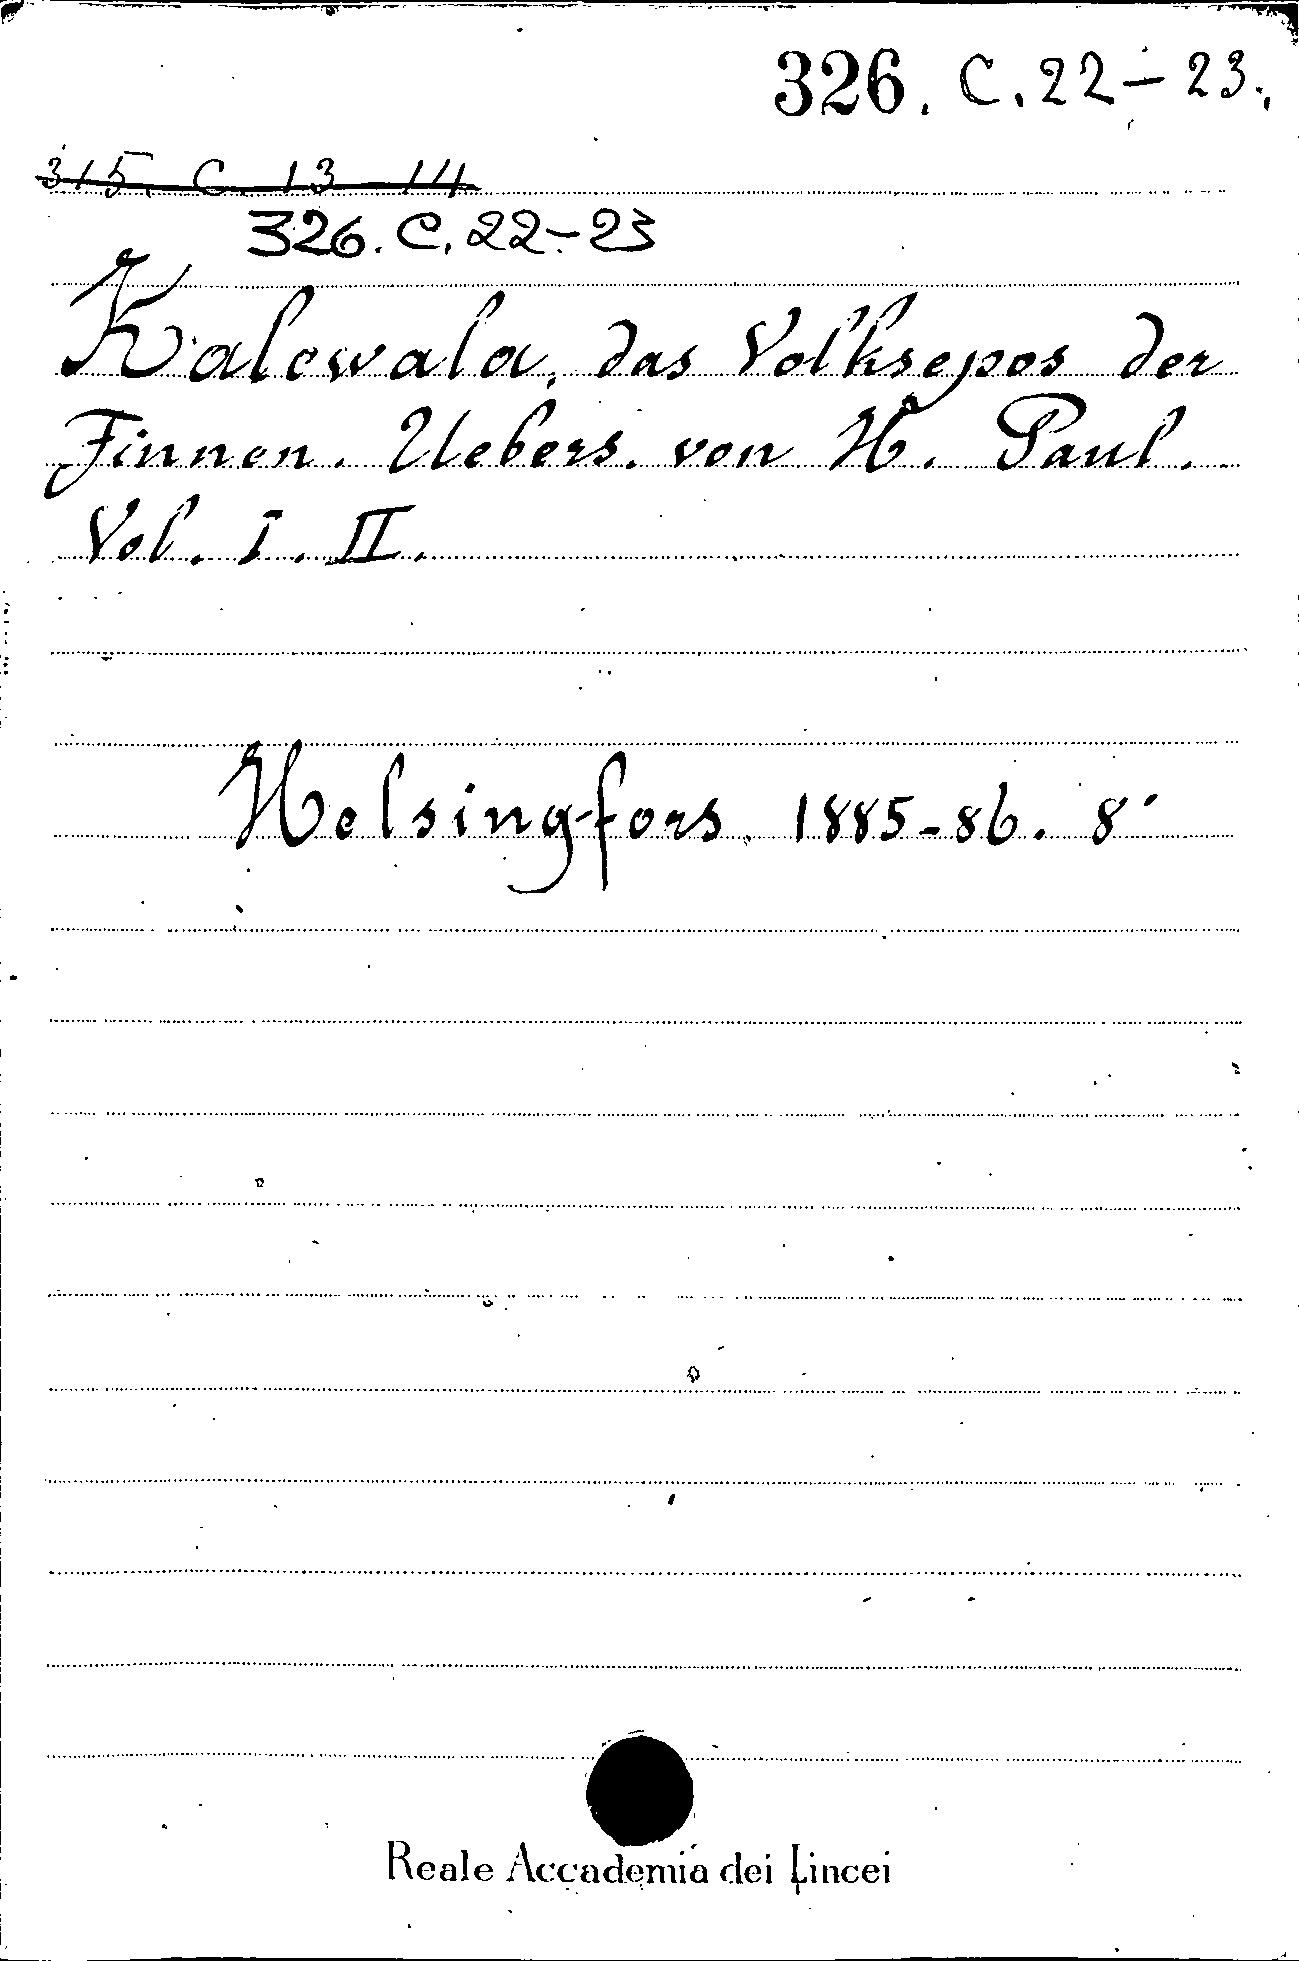 326. C. 22-23.
315. C. 13-14
326. C. 22-23
Kalewala, das Volksepos der
Finnen. Uebers. von H. Paul.
Vol. I. II.
Helsingfors. 1885-86. 8°
Reale Accademia dei Lincei